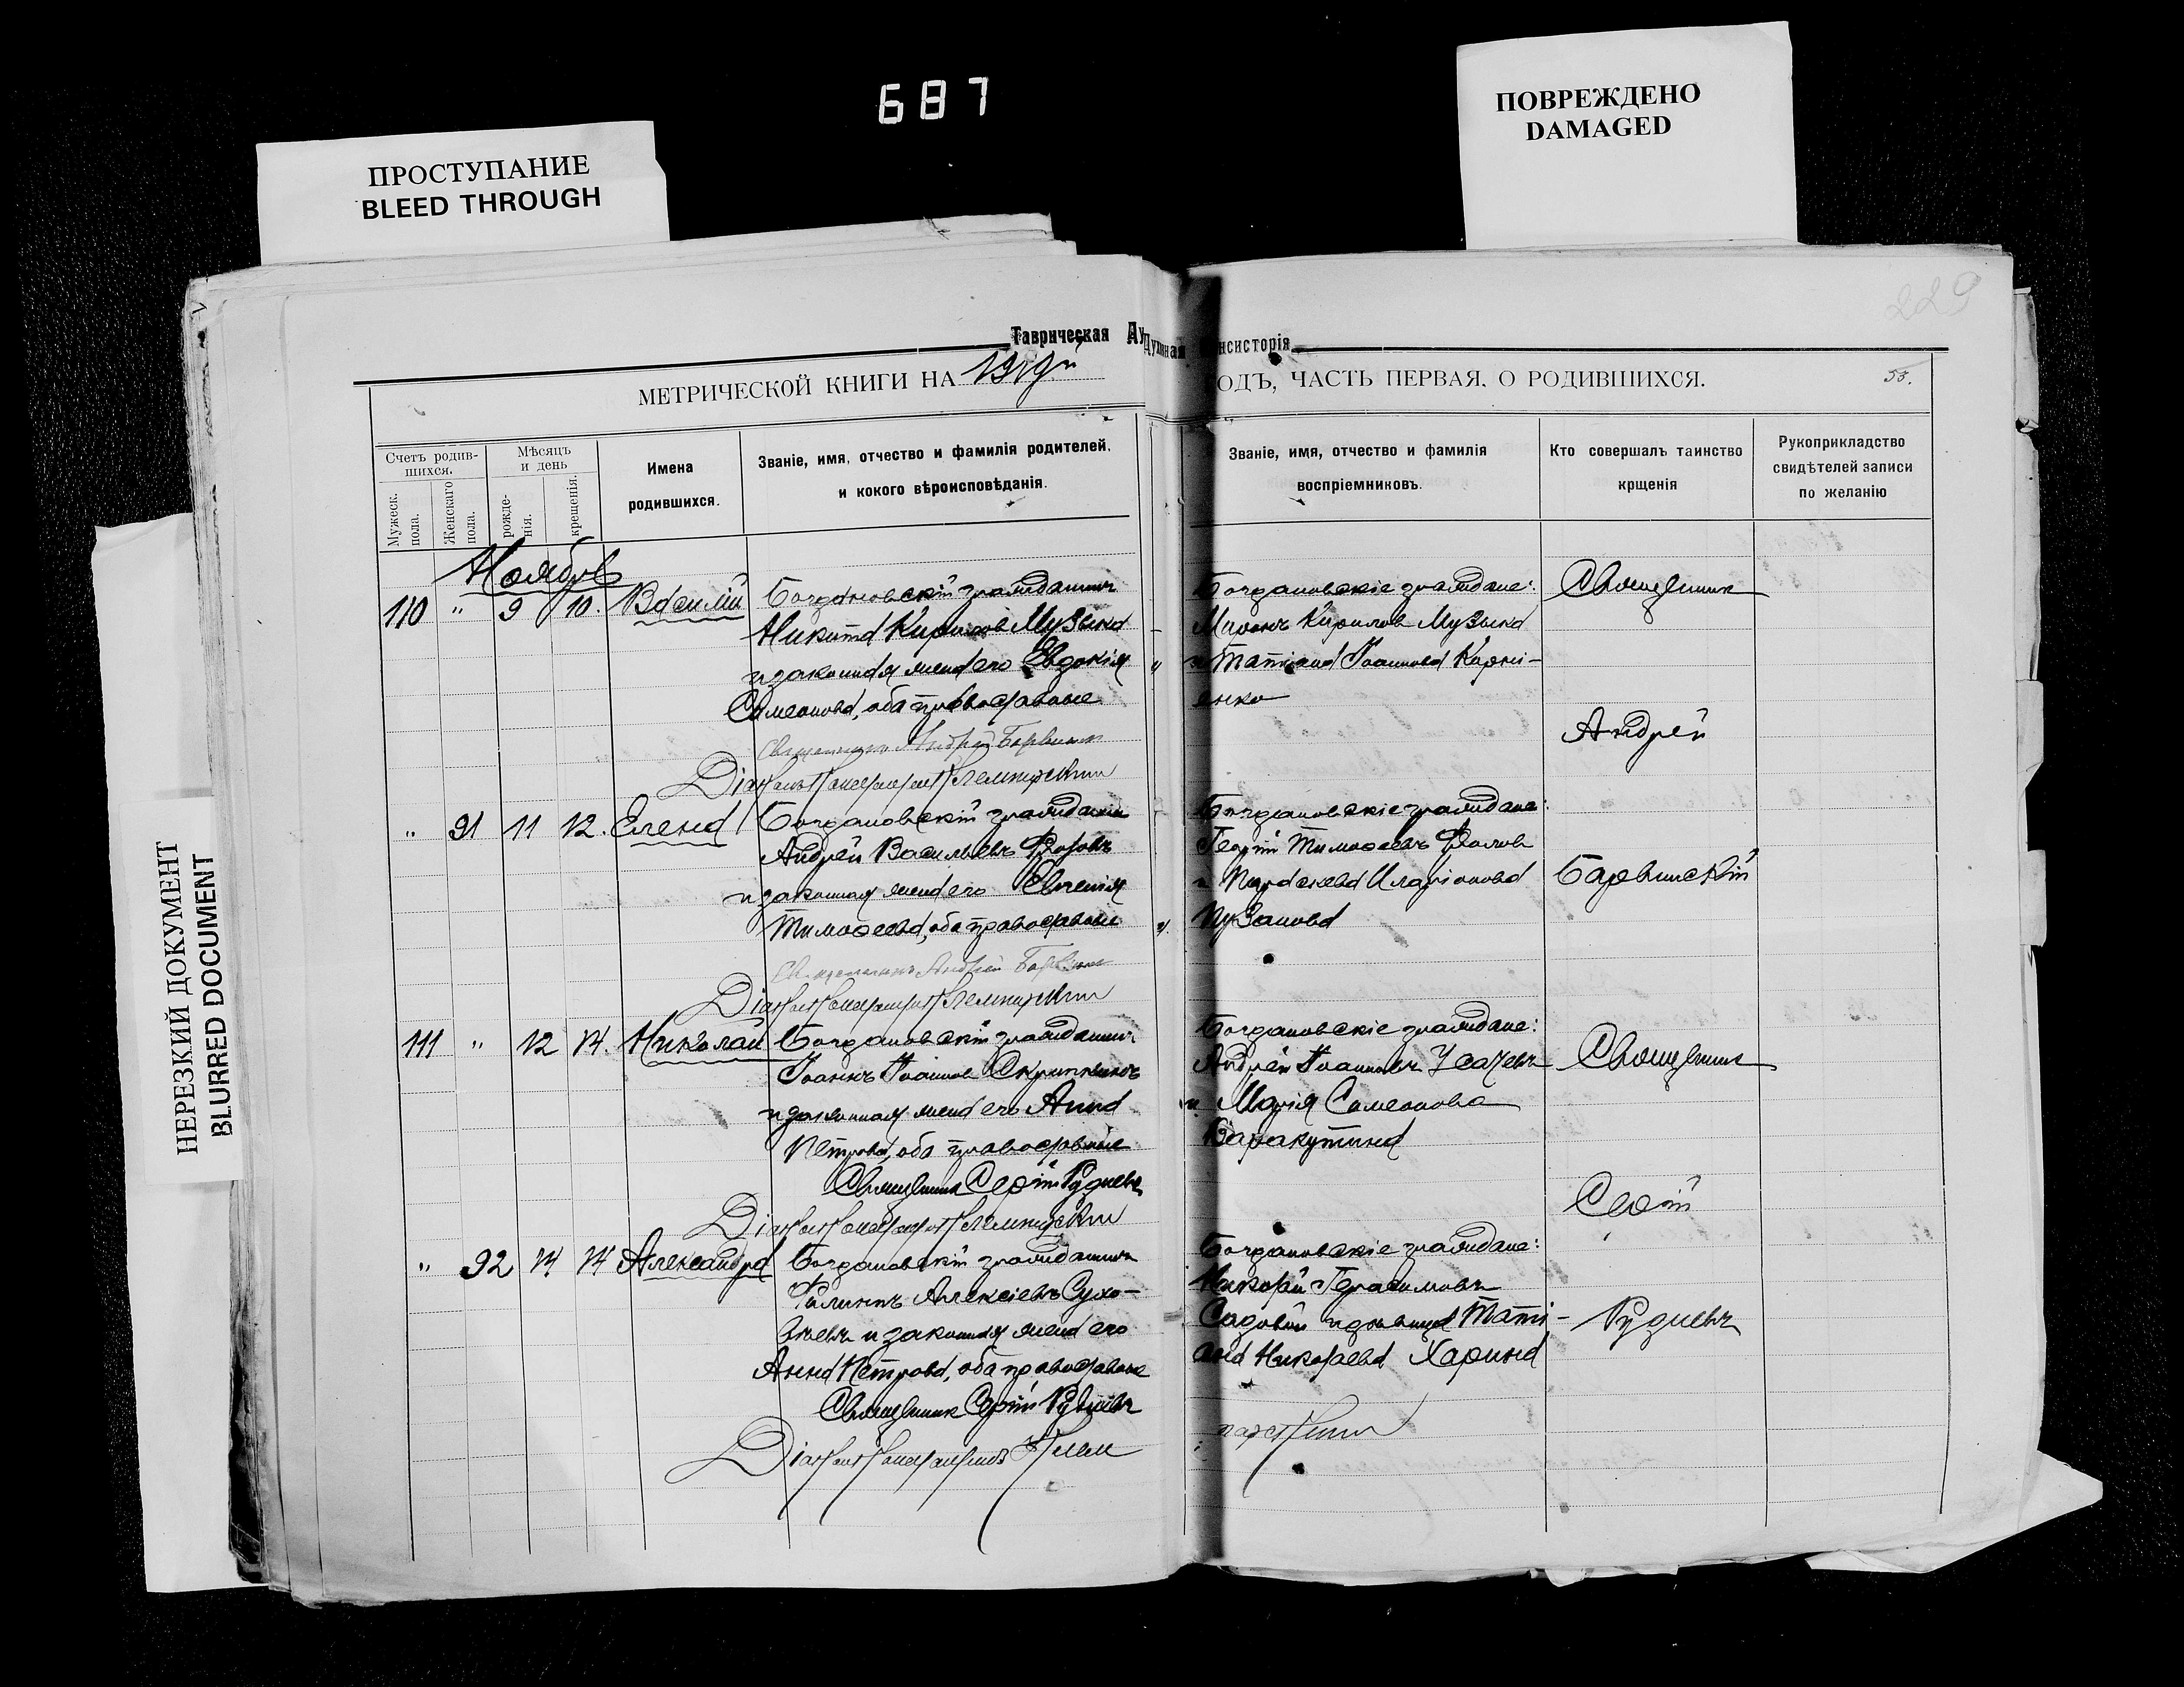 687
ПРОСТУПАНИЕ
BLEED THROUGH
ПОВРЕЖДЕНО
DAMAGED
НЕРЕЗКИЙ ДОКУМЕНТ
BLURRED DOCUMENT
229
Таврическая Духовная Консисторія
МЕТРИЧЕСКОЙ КНИГИ НА
ОДЪ, ЧАСТЬ ПЕРВАЯ, О РОДИВШИХСЯ.
53.
Счетъ родив-
шихся.
Мужеск.
пола.
Женскаго
пола.
Мѣсяцъ
и день
рожде-
нія.
крещенія.
Имена
родившихся.
Званіе, имя, отчество и фамилія родителей,
и кокого вѣроисповѣданія.
Званіе, имя, отчество и фамилія
воспріемниковъ.
Кто совершалъ таинство
крщенія
Рукоприкладство
свидѣтелей записи
по желанію
Ноябрь
110 " 9 10. Василій
Богдановскій гражданинъ
Никита Кирилов Музыка
и законная жена его Евдокія
Симеонова, оба православные
Священникъ Андрей
Діаконъ
Богдановскіе граждане:
Миронъ Кирилов Музыка
и Татіана Іоаннова Корні-
енко
Священник
Андрей
Барвинскій
" 91 11 12. Елена
Богдановскій гражданин
Андрей Васильевъ Фроловъ
и законная жена его Евгенія
Тимофеева, оба православные
Священникъ Андрей
Діаконъ
Богдановскіе граждане:
Георгій Тимофеевъ Фролов
и Параскева Иларіонова
Пузанова
111 " 12 14. Николай
Богдановскій гражданинъ
Іоаннъ Іоаннов Скрипниковъ
и законная жена его Анна
Петрова, оба православные
Священник Сергій Рудневъ
Діаконъ
Богдановскіе граждане:
Андрей Іоанновъ Усачевъ
и Марія Симеонова
Варакутина
Священник
Сергій
Рудневъ
" 92 14 14 Александра
Богдановскій гражданинъ
Филиппъ Алексіевъ Сухо-
и законная жена его
Анна Петрова, оба православные
Священник Сергій Рудневъ
Діаконъ
Богдановскіе граждане:
Николай Герасимовъ
Садовой и дѣвица Тати-
ана Николаева Харина